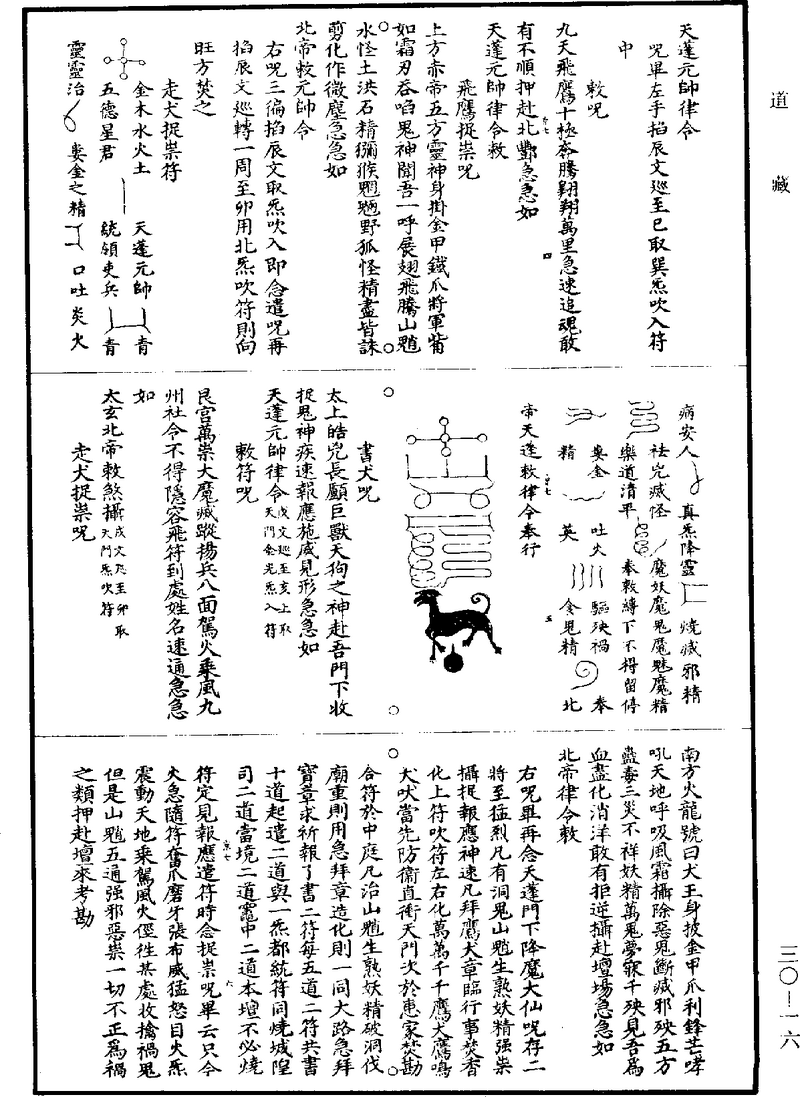 道藏
天蓬元帥律令
呪畢左手掐辰文廵至巳取巽炁吹入符
中
敕呪
九天飛鷹十極奔騰翱翔萬里急速追魂敢
有不順押赴北酆急急如
天蓬元帥律令敕
飛鷹捉祟呪
上方赤帝五方靈神身掛金甲鐵爪將軍觜
如霜刃吞啗鬼神聞吾一呼展翅飛騰山魈
水怪土洪石精獼猴魍魎野狐怪精盡皆誅
剪化作微塵急急如
北帝敕元帥令
右呪三徧掐辰文取炁吹入即念遣呪再
掐辰文廵轉一周至卯用北炁吹符則向
旺方焚之
走犬捉祟符
金木水火土 天蓬元帥 青
五德星君 統領吏兵 青
靈靈治 婁金之精 口吐炎火
病安人 真炁降靈 燒滅邪精
祛兇滅怪 魔妖魔鬼魔魅魔精
樂道清平 奉敕縛下不得留停
婁金 吐火 驅殃禍 奉
精 英 食鬼精 北
帝天蓬敕律令奉行
書犬呪
太上皓兇長顱巨獸天狗之神赴吾門下收
捉鬼神疾速報應施威見形急急如
天蓬元帥律令戌文廵至亥上取天門金光炁入符
敕符呪
艮宫萬祟大魔滅蹤揚兵八面駕火乘風九
州社令不得隱容飛符到處姓名速通急急
如
太玄北帝敕煞攝戌文廵至卯取天門炁吹符
走犬捉祟呪
南方火龍號曰犬王身披金甲爪利鋒芒哮
吼天地呼吸風霜攝除惡鬼斷滅邪殃五方
蠱毒三災不祥妖精萬鬼夢寐千殃見吾爲
血盡化消洋敢有拒逆攝赴壇場急急如
北帝律令敕
右呪畢再念天蓬門下降魔大仙呪存二
將至猛烈凡有洞鬼山魈生熟妖精强祟
攝捉報應神速凡拜鷹犬章臨行事焚香
化上符吹符左右化萬萬千千鷹犬鷹鳴
犬吠當先防衛直衝天門次於患家焚勘
合符於中庭凡治山魈生熟妖精破洞伐
廟重則用急拜章造化則一同大路急拜
寶章求祈報了書二符每五道二符共書
十道起遣二道與一炁都統符同燒城隍
司二道當境二道竈中二道本壇不必燒
符定見報應遣符時念捉祟呪畢云只今
火急隨符奮爪磨牙張布威猛怒目火炁
震動天地乘駕風火徑往某處收擒禍鬼
但是山魈五通强邪惡祟一切不正爲禍
之類押赴壇來考勘
三〇—一六